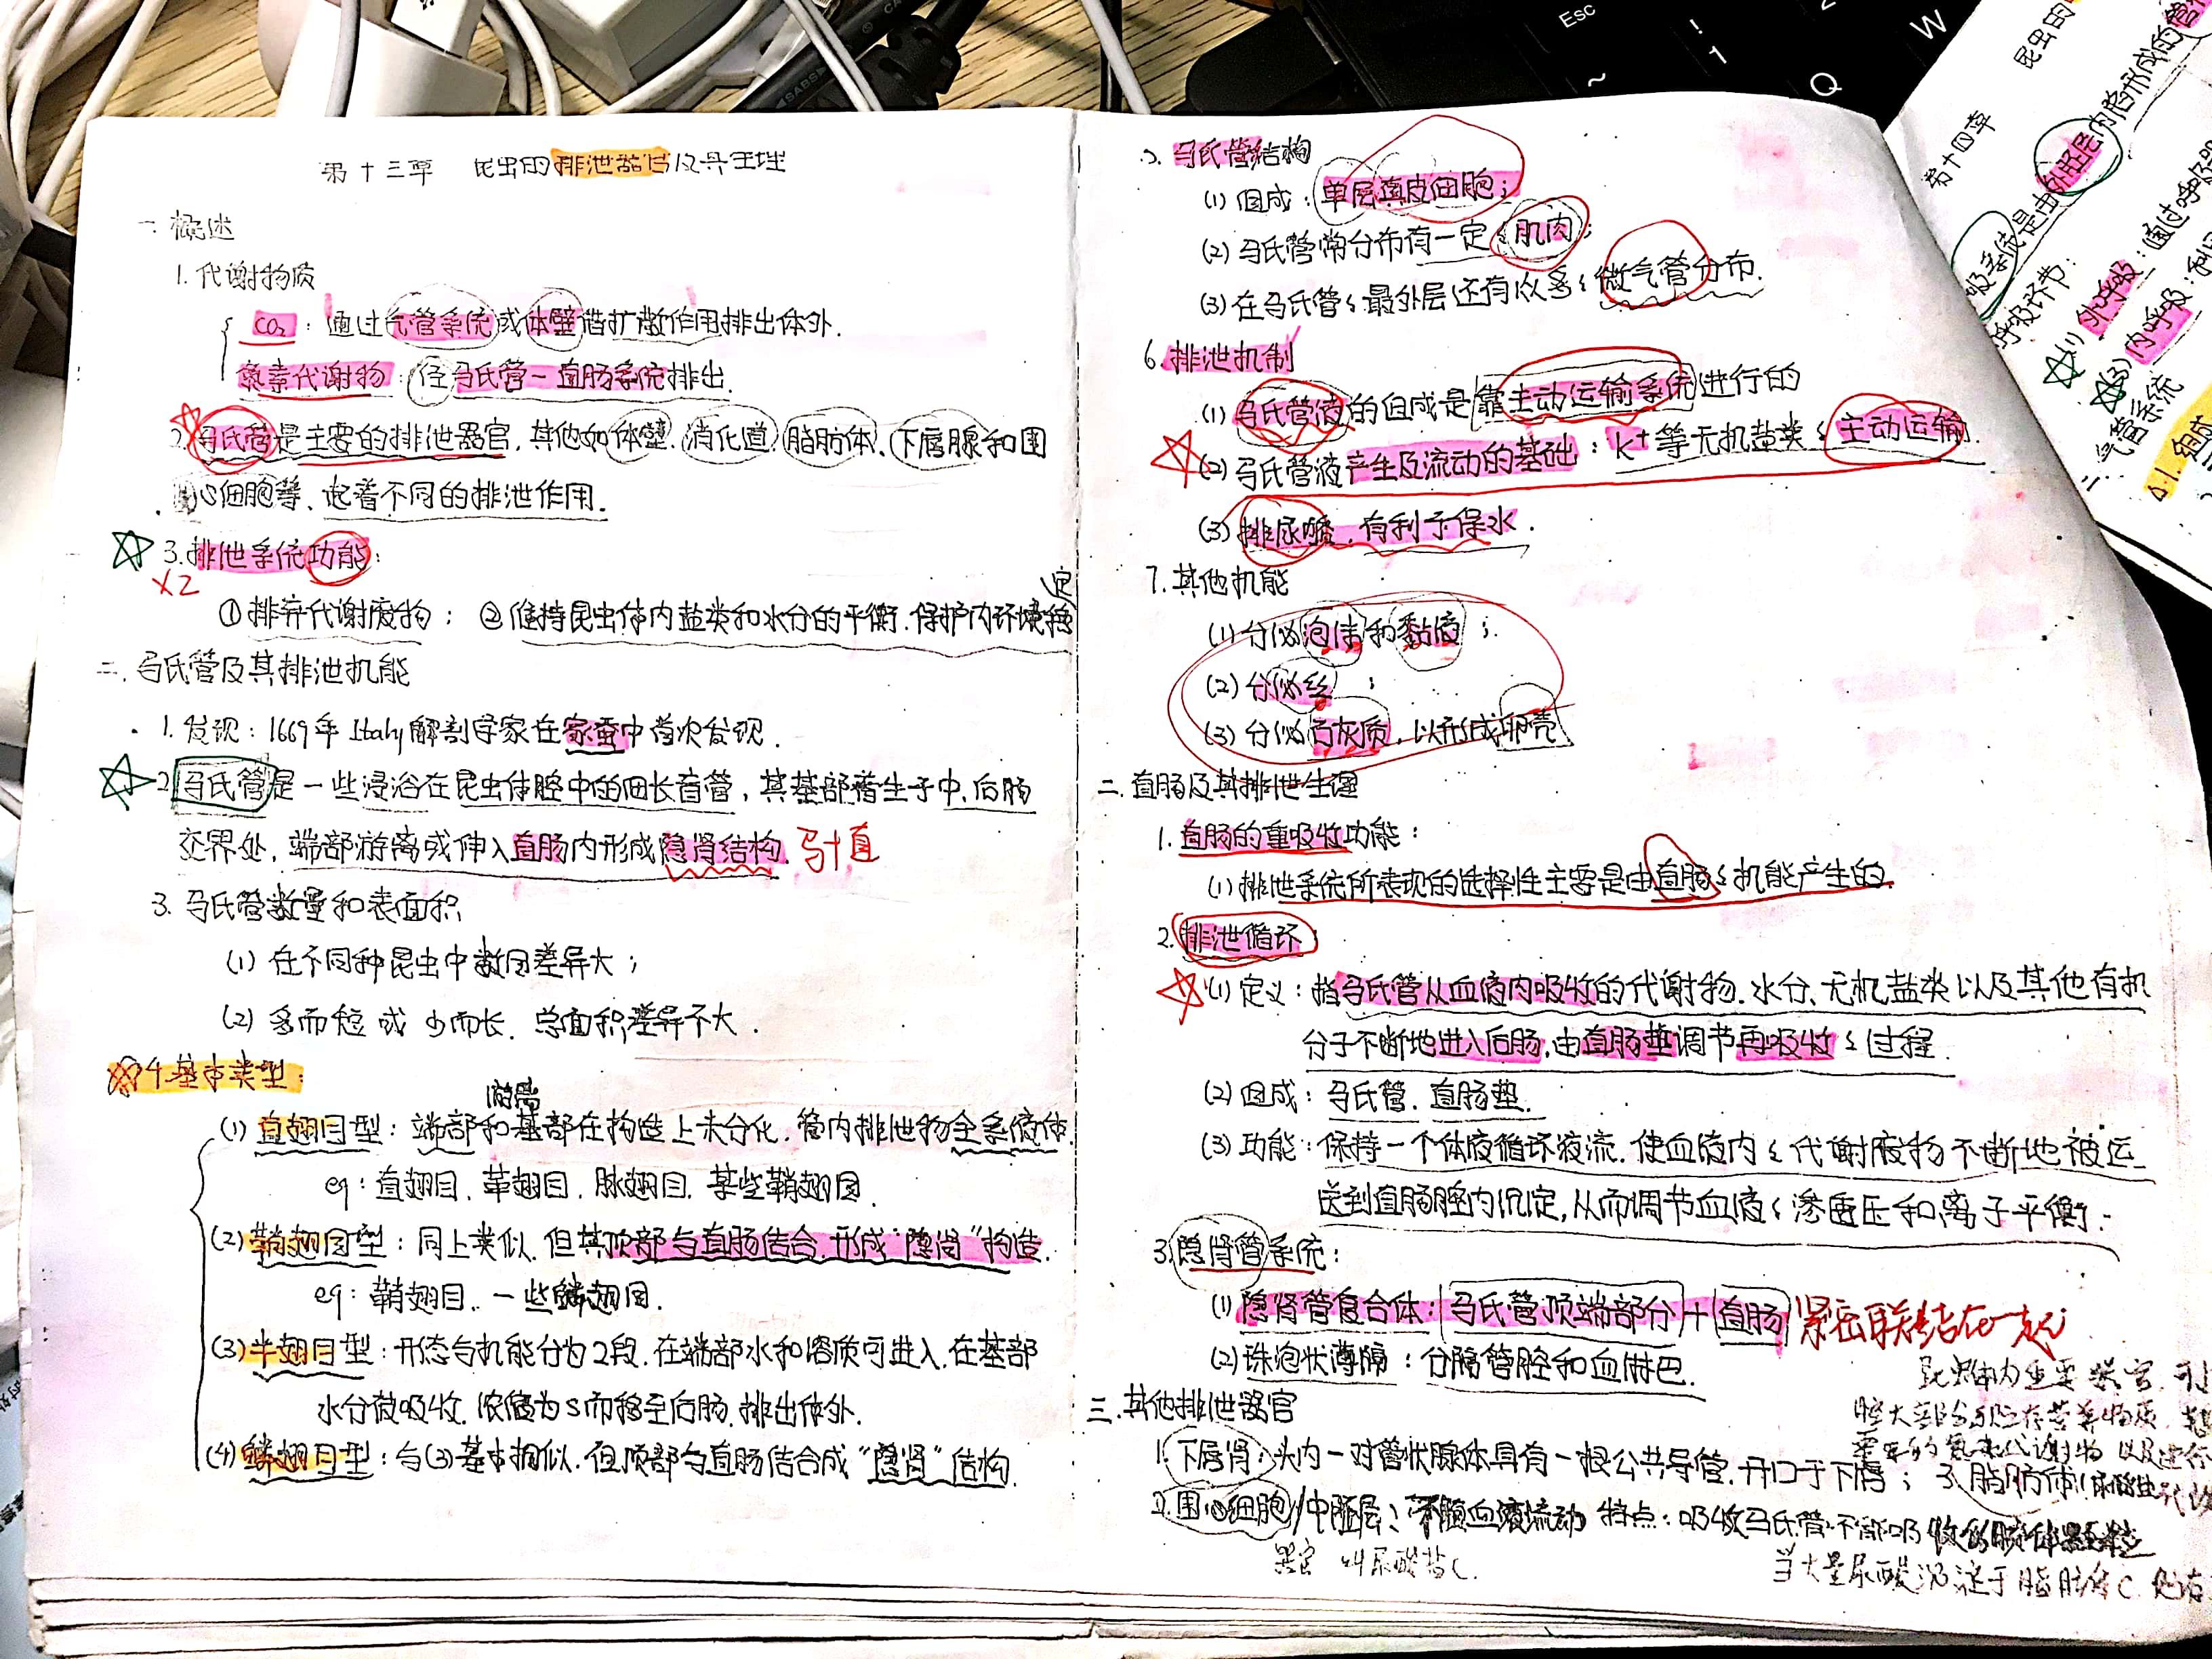 第十三章 昆虫的排泄器官及其生理
一.概述
1.代谢物质
CO₂:通过气管系统或体壁借扩散作用排出体外.
氮素代谢物:经马氏管-直肠系统排出.
2.马氏管是主要的排泄器官,其他如体壁.消化道.脂肪体.下唇腺和围
心细胞等、起着不同的排泄作用.
3.排泄系统功能:
×2
①排弃代谢废物; ②维持昆虫体内盐类和水分的平衡.保护内环境稳定
二.马氏管及其排泄机能
1.发现:1669年Italy解剖学家在家蚕中首次发现.
2.马氏管是一些浸浴在昆虫体腔中的细长盲管,其基部着生于中.后肠
交界处,端部游离或伸入直肠内形成隐肾结构. 马+直
3.马氏管数量和表面积
(1)在不同种昆虫中数目差异大;
(2)多而短 或 少而长.总面积差异不大.
4.基本类型:
游离
(1)直翅目型:端部和基部在构造上未分化.管内排泄物全系液体.
eg:直翅目.革翅目.脉翅目.某些鞘翅目.
(2)鞘翅目型:同上类似.但其顶部与直肠结合.形成"隐肾"构造.
eg:鞘翅目.一些鳞翅目.
(3)半翅目型:形态与机能分为2段.在端部水和溶质可进入.在基部
水分被吸收.浓缩为S而移至后肠.排出体外.
(4)鳞翅目型:与(3)基本相似.但顶部与直肠结合成"隐肾"结构.
5.马氏管结构
(1)组成:单层真皮细胞;
(2)马氏管常分布有一定肌肉;
(3)在马氏管最外层还有众多微气管分布.
6.排泄机制
(1)马氏管液的组成是靠主动运输系统进行的
(2)马氏管液产生及流动的基础:K⁺等无机盐类主动运输.
(3)排尿酸.有利于保水.
7.其他机能
(1)分泌泡沫和黏液;
(2)分泌丝;
(3)分泌石灰质.以形成卵壳
二.直肠及其排泄生理
1.直肠的重吸收功能:
(1)排泄系统所表现的选择性主要是由直肠机能产生的.
2.排泄循环:
(1)定义:指马氏管从血液内吸收的代谢物.水分、无机盐类以及其他有机
分子不断地进入后肠.由直肠垫调节再吸收过程.
(2)组成:马氏管.直肠垫.
(3)功能:保持一个体液循环液流.使血液内代谢废物不断地被运
送到直肠腔内沉淀,从而调节血液渗透压和离子平衡.
3.隐肾管系统:
(1)隐肾管复合体:马氏管顶端部分+直肠 紧密联结在一起
(2)珠泡状薄隔:分隔管腔和血淋巴.
三.其他排泄器官
1.下唇肾:头内一对管状腺体具有一根公共导管.开口于下唇;
3.脂肪体
2.围心细胞(中胚层、不随血液流动 特点:吸收马氏管不能吸收的胶体颗粒
昆虫体内重要器官
器官 叫尿酸盐C.
当大量尿酸沉淀于脂肪体C
第十四章
昆虫的
外胚层内陷形成的管
(1)外呼吸:通过呼吸
(2)内呼吸:利
呼吸环节:
二.气管系统